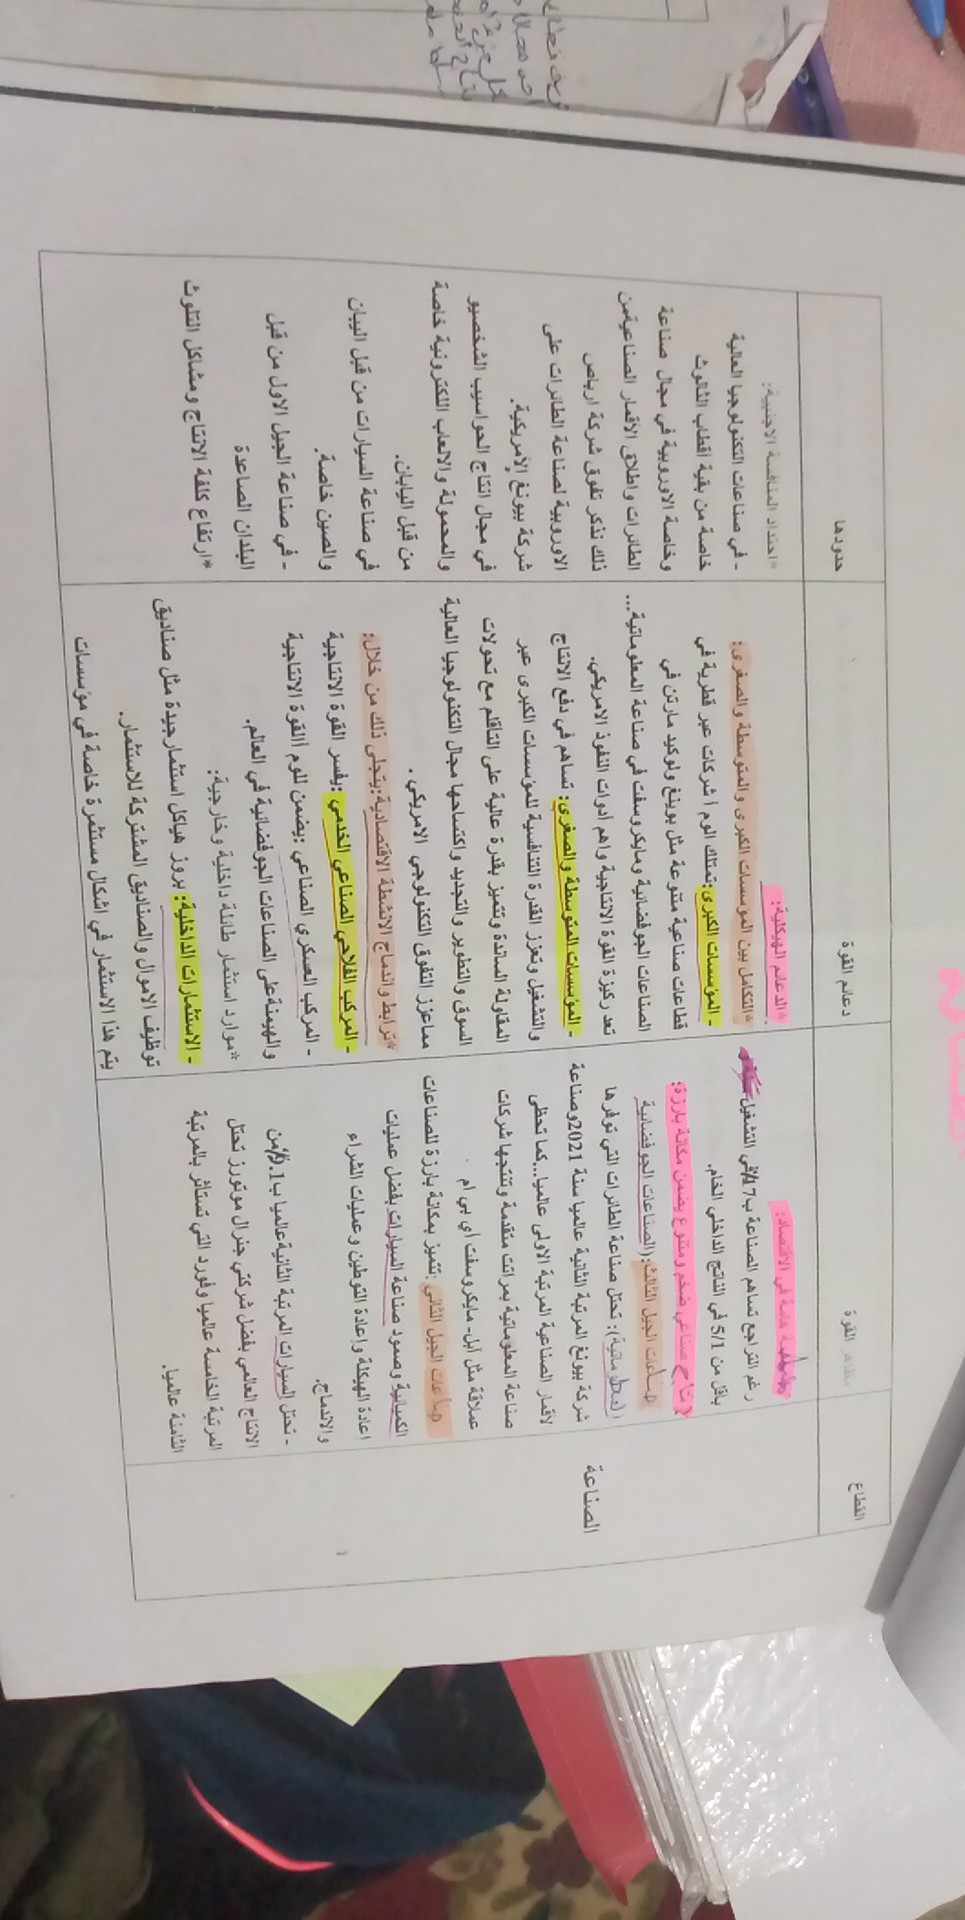 القطاع
مظاهر القوة
دعائم القوة
حدودها
الصناعة
هامة في الاقتصاد:
رغم التراجع تساهم الصناعة ب17% في التشغيل
باقل من 5/1 في الناتج الداخلي الخام.
إنتاج صناعي ضخم ومتنوع يضمن مكانة بارزة:
صناعات الجيل الثالث:(الصناعات الجوفضائية
،(معلوماتية): تحتل صناعة الطائرات التي توفرها
شركة بيونغ المرتبة الثانية عالميا سنة 2021 وصناعة
لاقمار الصناعية المرتبة الاولى عالميا...كما تحظى
صناعة المعلوماتية بمراتب متقدمة وتنتجها شركات
عملاقة مثل آبل- مايكروسفت أي بي ام .
صناعات الجيل الثاني :تتميز بمكانة بارزة للصناعات
الكميائية وصمود صناعة السيارات بفضل عمليات
اعادة الهيكلة وإعادة التوطين وعمليات الشراء
والاندماج.
- تحتل السيارات المرتبة الثانية عالميا ب9.1% من
الانتاج العالمي بفضل شركتي جنرال موتورز تحتل
المرتبة الخامسة عالميا وفورد التي تستاثر بالمرتبة
الثامنة عالميا.
*الدعائم الهيكلية:
*التكامل بين المؤسسات الكبرى والمتوسطة والصغرى:
- المؤسسات الكبرى:تمتلك الوم أ شركات عبر قطرية في
قطاعات صناعية متنوعة مثل بوينغ ولوكيد مارتن في
الصناعات الجوفضائية ومايكروسفت في صناعة المعلوماتية...
تعد ركيزة القوة الانتاجية واهم ادوات النفوذ الامريكي.
- المؤسسات المتوسطة والصغرى: تساهم في دفع الانتاج
والتشغيل وتعزز القدرة التنافسية للمؤسسات الكبرى عبر
المقاولة الساندة وتتميز بقدرة عالية على التأقلم مع تحولات
السوق والتطوير والتجديد واكتساحها مجال التكنولوجيا العالية
مماعزز التفوق التكنولوجي الامريكي .
*ترابط واندماج الانشطة الاقتصادية:يتجلى ذلك من خلال:
- المركب الفلاحي الصناعي الخدمي :يفسر القوة الانتاجية
- المركب العسكري الصناعي :يضمن للوم أالقوة الانتاجية
والهيمنةعلى الصناعات الجوفضائية في العالم.
*موارد استثمار طائلة داخلية وخارجية:
- الاستثمارات الداخلية: بروز هياكل استثمار جيدة مثل صناديق
توظيف الاموال والصناديق المشتركة للاستثمار.
يتم هذا الاستثمار في اشكال مستثمرة خاصة في مؤسسات
*احتداد المنافسة الاجنبية:
- في صناعات التكنولوجيا العالية
خاصة من بقية أقطاب الثالوث
وخاصة الاوروبية في مجال صناعة
الطائرات واطلاق الاقمار الصناعيةمن
ذلك نذكر تفوق شركة ارباص
الاوروبية لصناعة الطائرات على
شركة بيونغ الأمريكية.
في مجال انتاج الحواسيب الشخصيو
والمحمولة والالعاب الالكترونية خاصة
من قبل اليابان.
في صناعة السيارات من قبل اليبان
والصين خاصة.
- في صناعة الجيل الاول من قبل
البلدان الصاعدة
*ارتفاع كلفة الانتاج ومشاكل التلوث